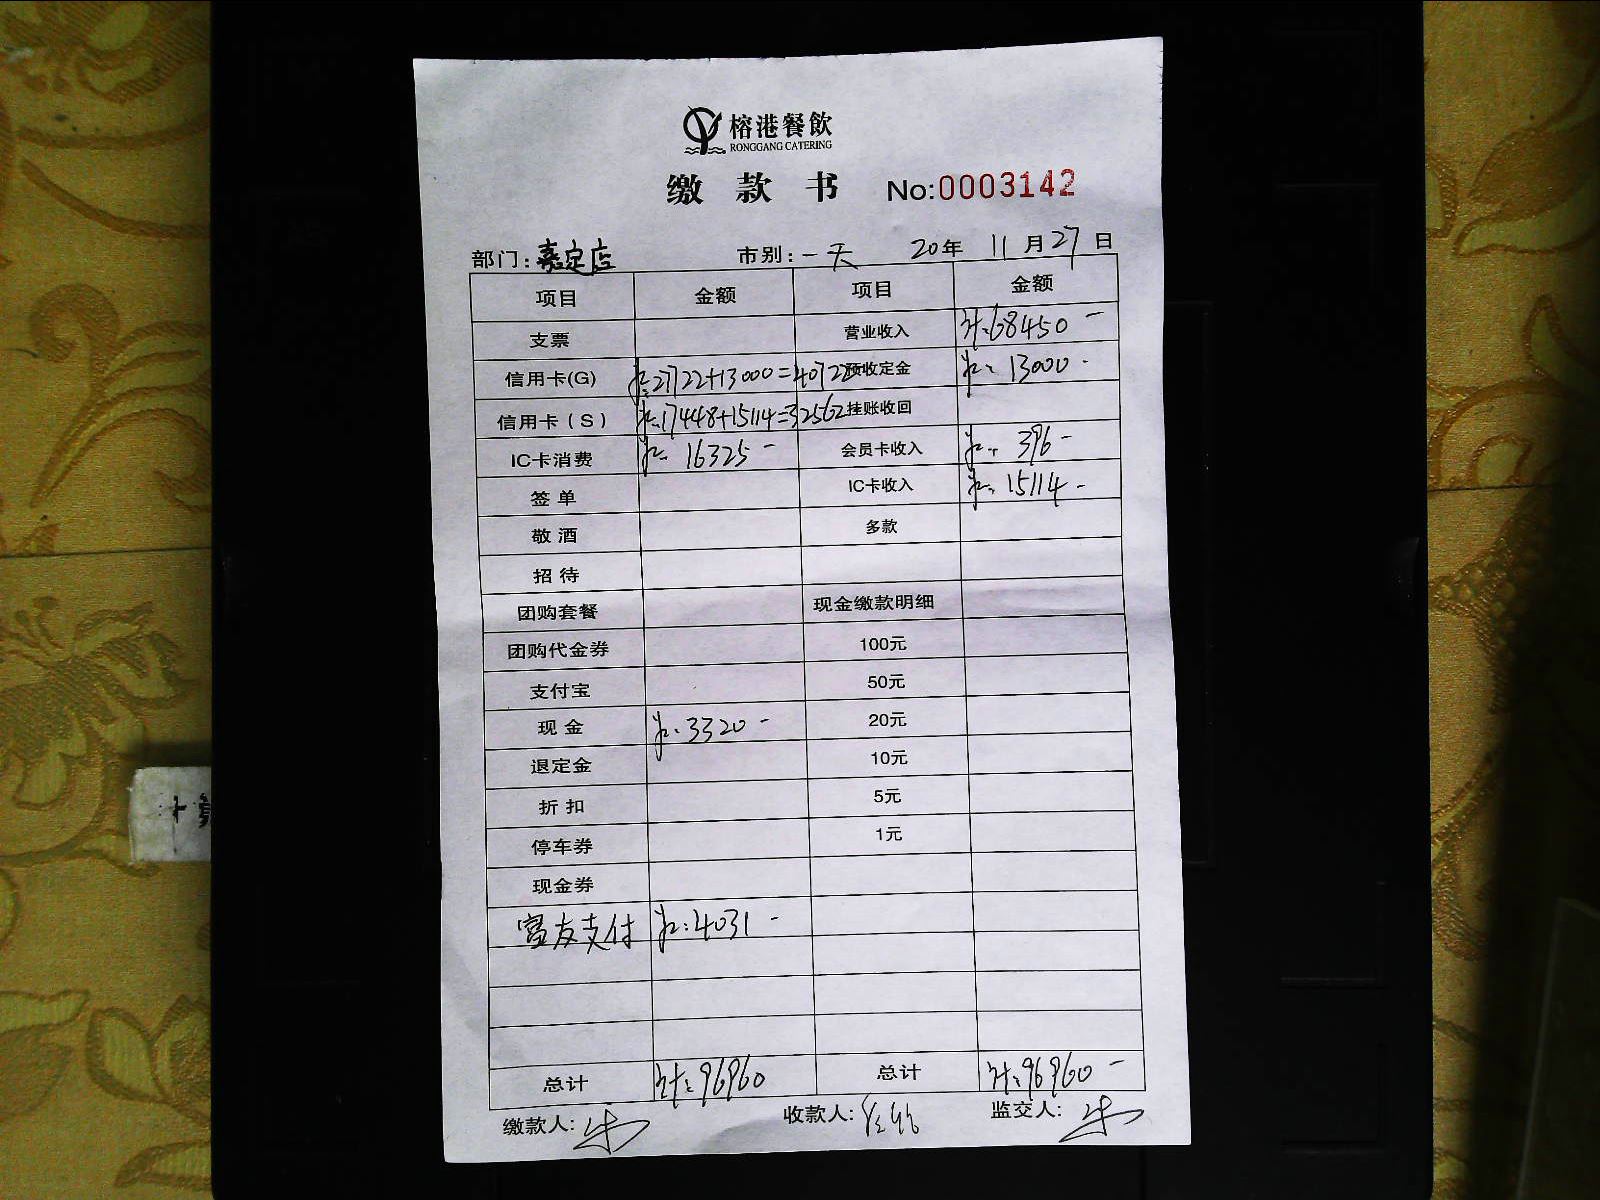 榕港餐飲
RONGGANG CATERING
缴款书 No:0003142
部门:嘉定店 市别:一天 20年11月27日
项目 金额 项目 金额
支票 营业收入 计:68450-
信用卡(G) 27722+13000=40722 预收定金 13000-
信用卡(S) 17448+15114=32562 挂账收回
IC卡消费 16325- 会员卡收入 396-
签单 IC卡收入 15114-
敬酒 多款
招待
团购套餐 现金缴款明细
团购代金券 100元
支付宝 50元
现金 3320- 20元
退定金 10元
折扣 5元
停车券 1元
现金券
富友支付 4031-
总计 计:96960 总计 计:96960-
缴款人: 收款人: 监交人: